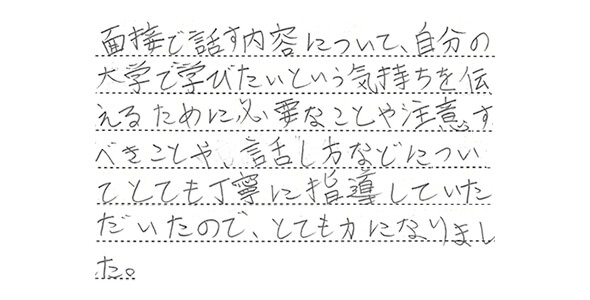 面接で話す内容について、自分の
大学で学びたいという気持ちを伝
えるために必要なことや注意す
べきことや、話し方などについ
てとても丁寧に指導していた
だいたので、とても力になりまし
た。